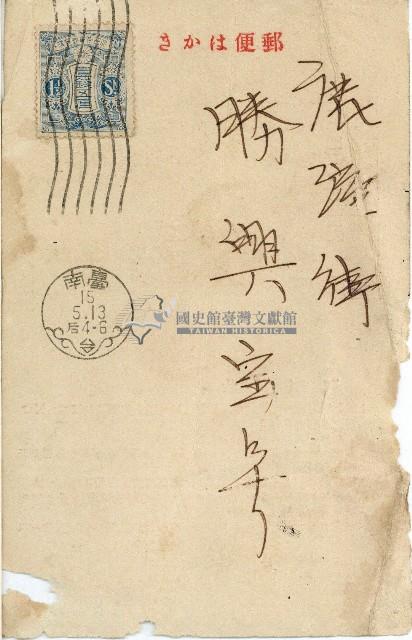 郵便はかき
1½ S
鹿港街
勝興宝号
臺南
15
5.13
后4-6
台
國史館臺灣文獻館
TAIWAN HISTORICA